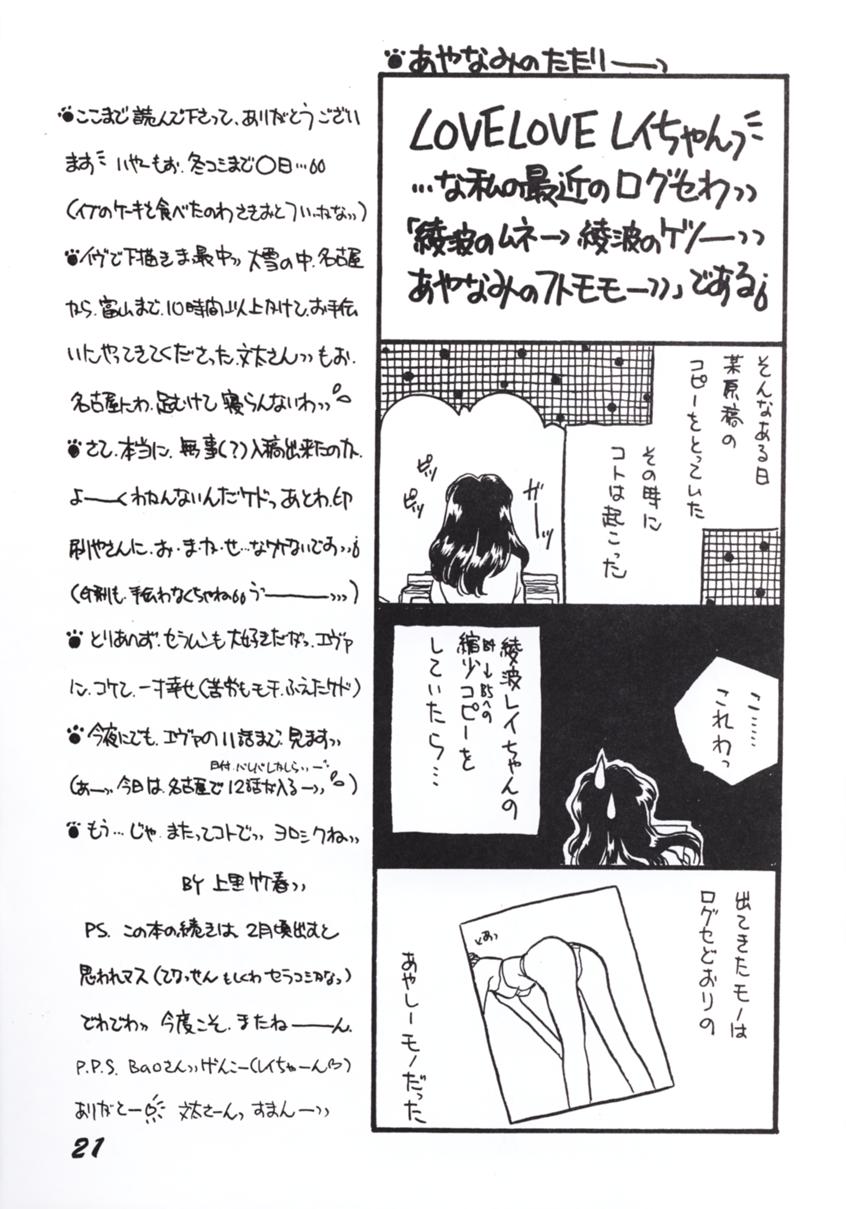 あやなみのたたりーっ
LOVELOVE レイちゃんっ
…な私の最近のログセわっっ
「綾波のムネーっ綾波のケツーっっ
あやなみのフトモモーっっ」である。
そんなある日
某原稿の
コピーをとっていた
その時に
コトは起こった
ピッ
ピッ
ガーッ
こ……
これわっ
綾波レイちゃんの
B4→B5への
縮少コピーを
していたら…
出てきたモノは
ログセどおりの
あやしーモノだった
あっ
ここまで読んで下さって、ありがとうござい
ます いやーもお、冬コミまで〇日…
(イブのケーキを食べたのわさきおとついかなっ)
イヴで下描きま最中っっ 大雪の中、名古屋
から、富山まで、10時間以上かけて、お手伝
いにやってきてくださった、文太さんっっ もお、
名古屋にわ、足むけて 寝らんないわっっ
さて、本当に、無事(?)入稿出来たのか、
よーーくわかんないんだケドっ あとわ、印
刷やさんに、お・ま・か・せ…なワケないですっっ
(台刷も、手伝わなくちゃねっ うーーーっっっ)
とりあえず、セラムンも大好きだがっ、エヴァ
に、コケて、一寸幸せ(苦労もモチ、ふえたケド)
今夜にでも、エヴァの11話まで、見ますっっ
(あーっっ 今日は、名古屋で12話が入るーっっ)
もう…じゃ、またってコトでっっ ヨロシクねっっ
BY 上里竹春っっ
PS. この本の続きは、2月頃出すと
思われマス(てりっせんもしくわセラコミかなっ)
でわでわっっ 今度こそ、またねーーん、
P.P.S. Baoさんっっ げんこー(レイちゃーん)
ありがとー 文太さーんっ すまんーっっ
21